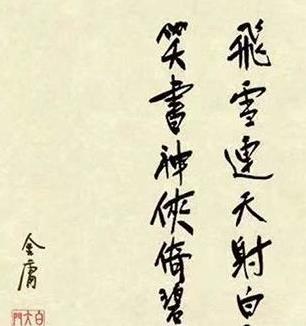 飛雪連天射白
笑書神俠倚碧
金庸